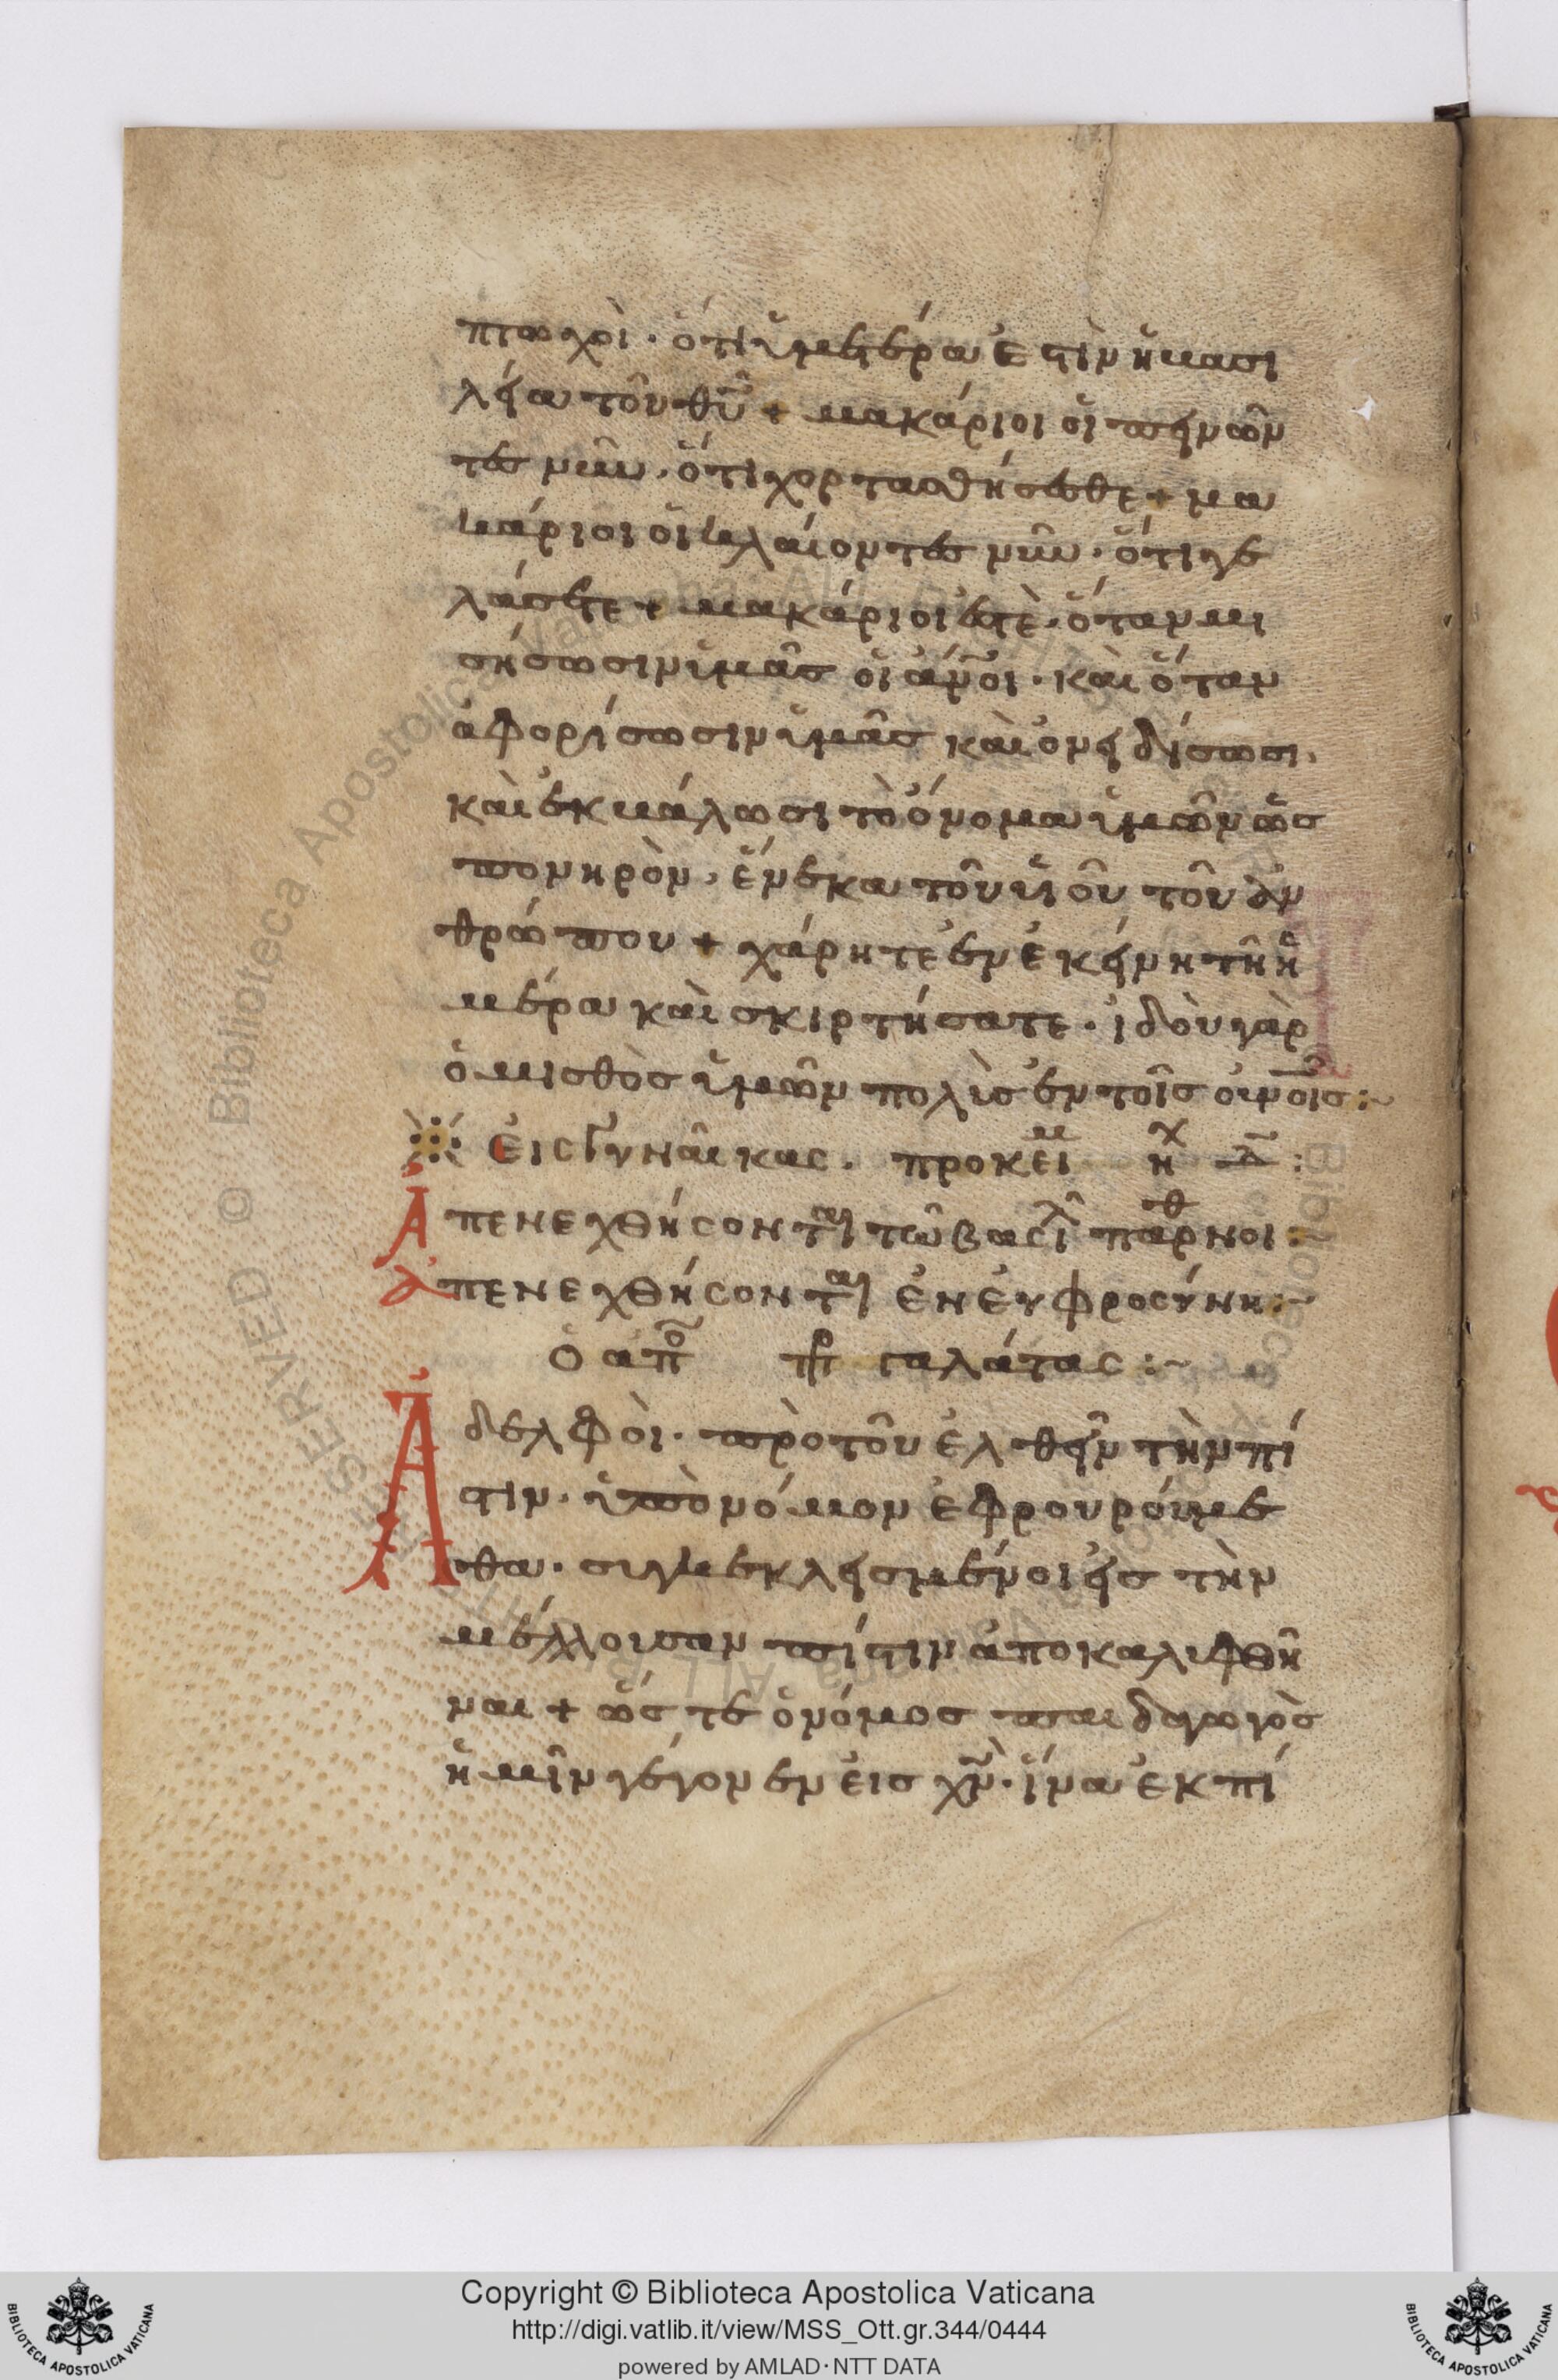 πτωχοὶ · ὅτι ὑμετέρα ἐστὶν ἡ βασι
λεία τοῦ θῦ + μακάριοι οἱ πεινῶν
τες νῦν · ὅτι χορτασθήσεσθε + μα
κάριοι οἱ κλαίοντες νῦν · ὅτι γε
λάσετε + μακάριοι ἐστὲ · ὅταν μι
σήσωσιν ὑμᾶς οἱ ἄνοι · καὶ ὅταν
ἀφορίσωσιν ὑμᾶς καὶ ὀνειδίσωσι ·
καὶ ἐκβάλωσι τὸ ὄνομα ὑμῶν ὡς
πονηρὸν · ἕνεκα τοῦ υἱοῦ τοῦ ἀν
θρώπου + χάρητε ἐν ἐκείνη τῆ ἡ
μέρα καὶ σκιρτήσατε · ἰδοὺ γὰρ
ὁ μισθὸς ὑμῶν πολὺς ἐν τοῖς οὐνοῖς :~
εἰς γυναῖκας · προκεῖ ἦχ Δ :
Ἀπενεχθήσονται τῶ βασιλ παρθνοι :~
ἀπενεχθήσονται ἐν εὐφροσύνη :~
ὁ ἀπο πρ γαλάτας :~
Ἀδελφοὶ · πρὸ τοῦ ἐλθεῖν τὴν πί
στιν · ὑπὸ νόμον ἐφρουρούμε
θα · συγκεκλεισμένοι εἰς τὴν
μέλλουσαν πίστιν ἀποκαλυφθῆ
ναι + ὥστε ὁ νόμος παιδαγωγὸς
ἡμῖν γέγονεν εἰς χν · ἵνα ἐκ πί
Copyright © Biblioteca Apostolica Vaticana
http://digi.vatlib.it/view/MSS_Ott.gr.344/0444
powered by AMLAD · NTT DATA
BIBLIOTECA APOSTOLICA VATICANA
BIBLIOTECA APOSTOLICA VATICANA